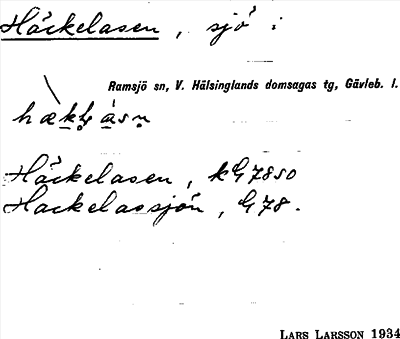 Häckelasen, sjö:
Ramsjö sn, V. Hälsinglands domsagas tg, Gävleb. l.
Häckelasen, kG7850
Hackelassjön, G78.
LARS LARSSON 1934